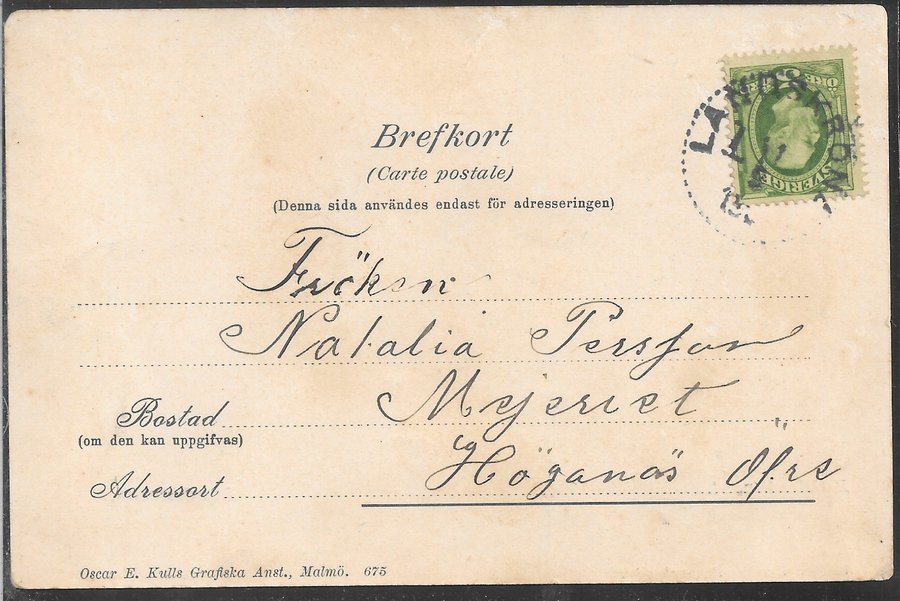 Brefkort
(Carte postale)
(Denna sida användes endast för adresseringen)
LANDSKRONA
SVERIGE
Fröken
Natalia Persson
Bostad
(om den kan uppgifvas)
Mejeriet
Adressort
Höganäs Öfre
Oscar E. Kulls Grafiska Anst., Malmö. 675